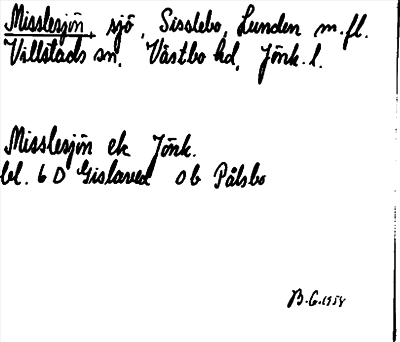 Misslesjön, sjö, Sisslebo, Lunden m.fl.
Villstads sn, Västbo hd, Jönk. l.
Misslesjön ek Jönk.
bl. 6 D Gislaved 0 b Pålsbo
B.G. 1958